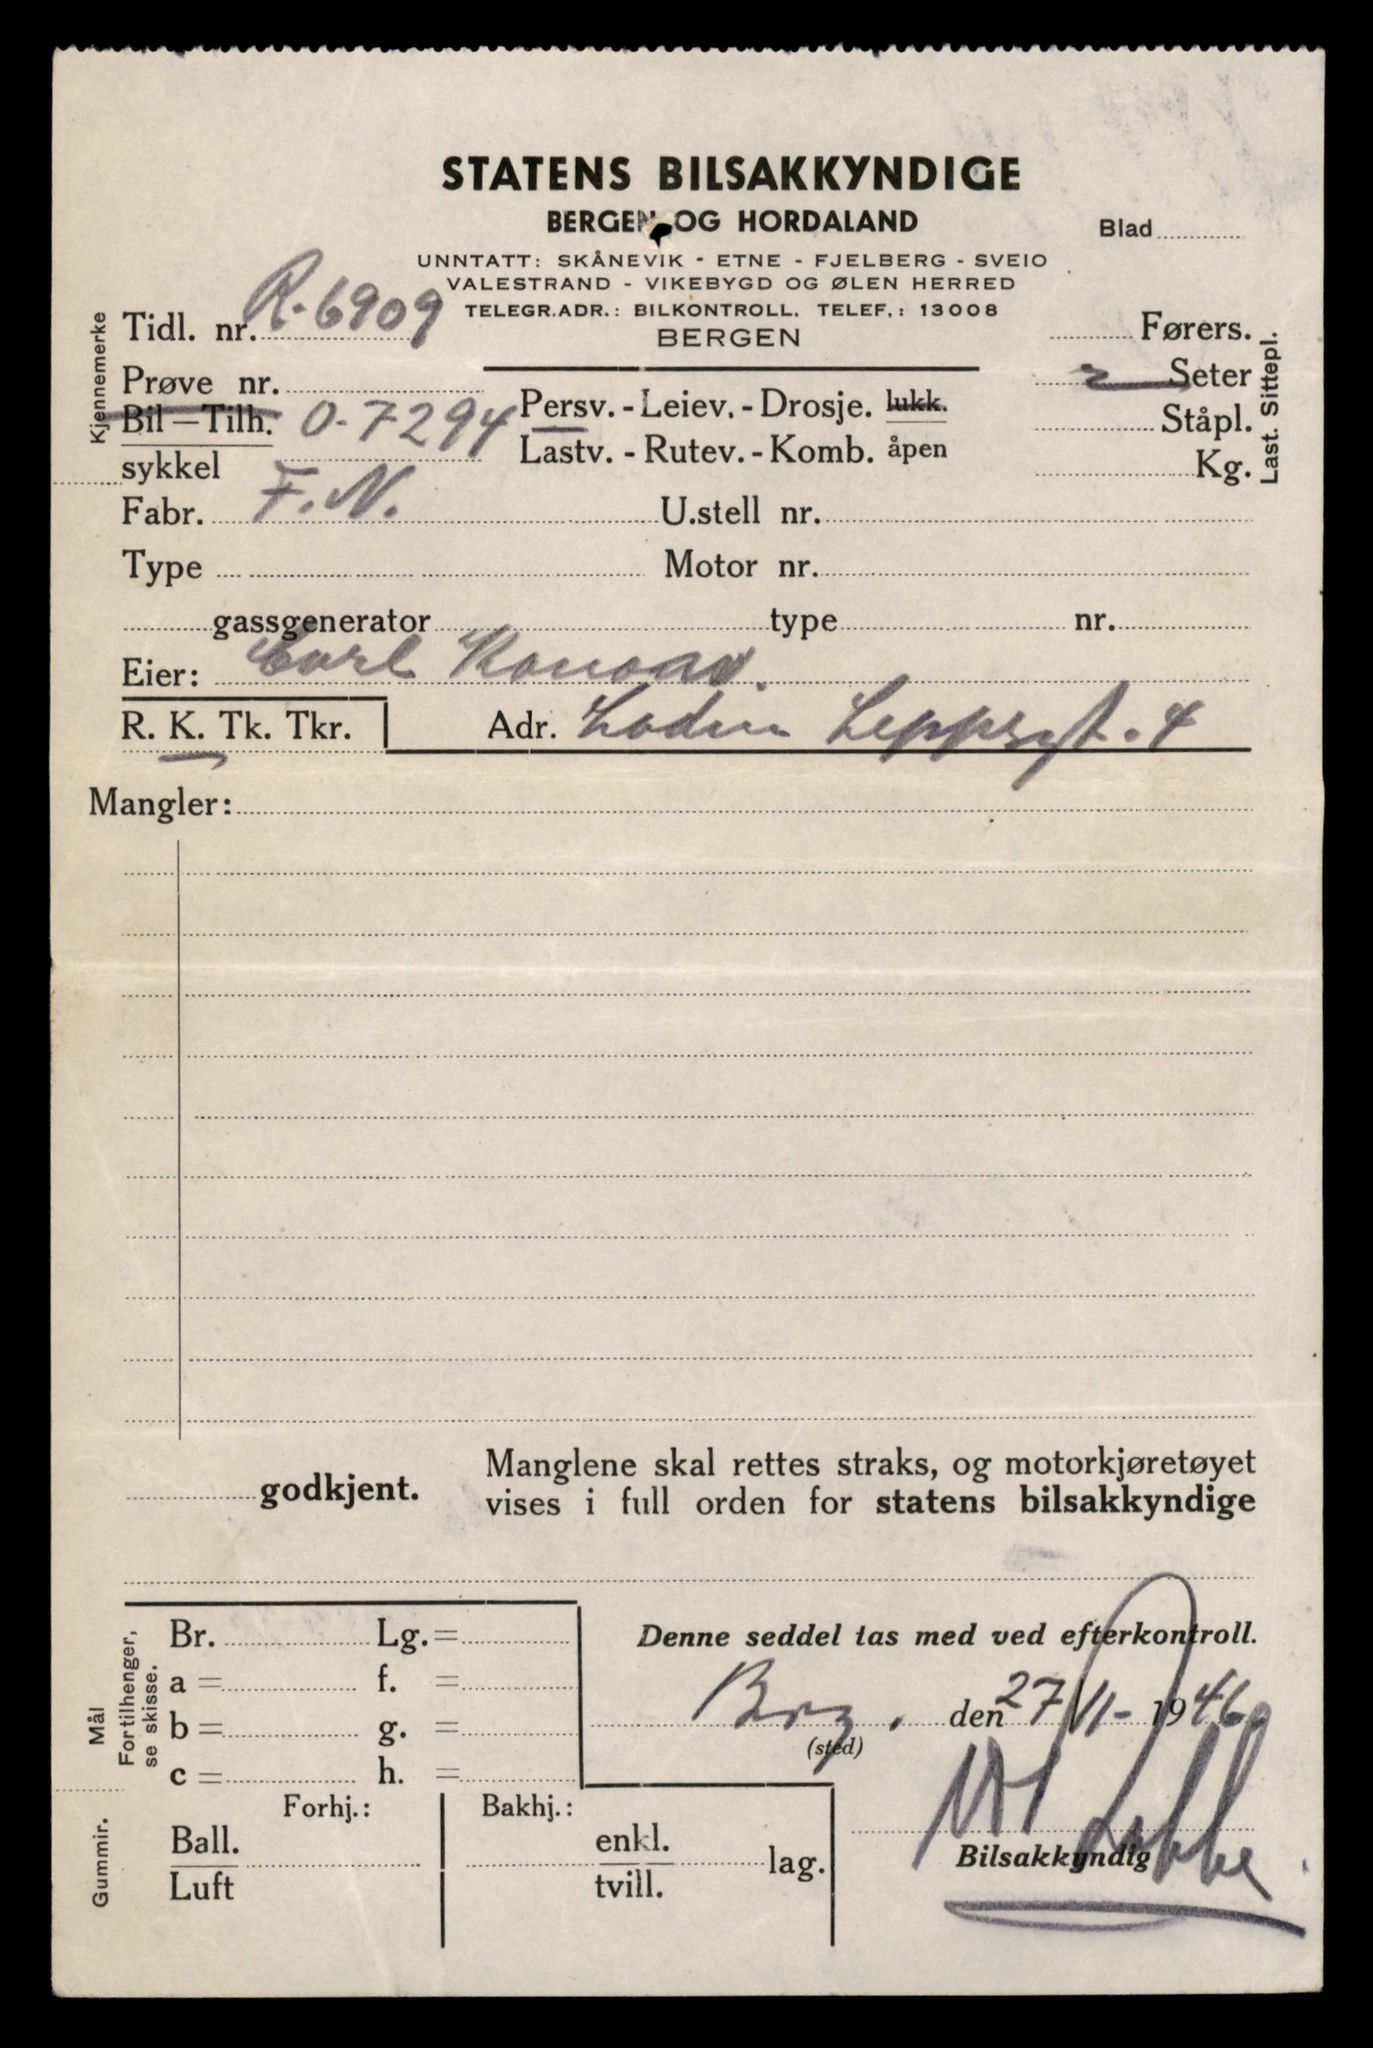 STATENS BILSAKKYNDIGE
BERGEN OG HORDALAND
Blad
UNNTATT: SKÅNEVIK - ETNE - FJELBERG - SVEIO
VALESTRAND - VIKEBYGD OG ØLEN HERRED
TELEGR.ADR.: BILKONTROLL. TELEF.: 13008
BERGEN
Kjennemerke
Tidl. nr. R-6909
Prøve nr.
Bil - Tilh. O-7294
sykkel
Persv. - Leiev. - Drosje. lukk.
Lastv. - Rutev. - Komb. åpen
Førers.
2 Seter
Ståpl.
Kg.
Last. Sittepl.
Fabr. F.N. U.stell nr.
Type Motor nr.
gassgenerator type nr.
Eier: Carl
R. K. Tk. Tkr. Adr. Lodin Leppsgt. 4
Mangler:
godkjent.
Manglene skal rettes straks, og motorkjøretøyet
vises i full orden for statens bilsakkyndige
Mål
Fortilhenger,
se skisse.
Br. Lg. =
a = f. =
b = g. =
c = h. =
Denne seddel tas med ved efterkontroll.
Brg. den 27/11-1946
(sted)
Bilsakkyndig
Gummir.
Forhj.: Bakhj.:
Ball.
Luft
enkl.
tvill.
lag.